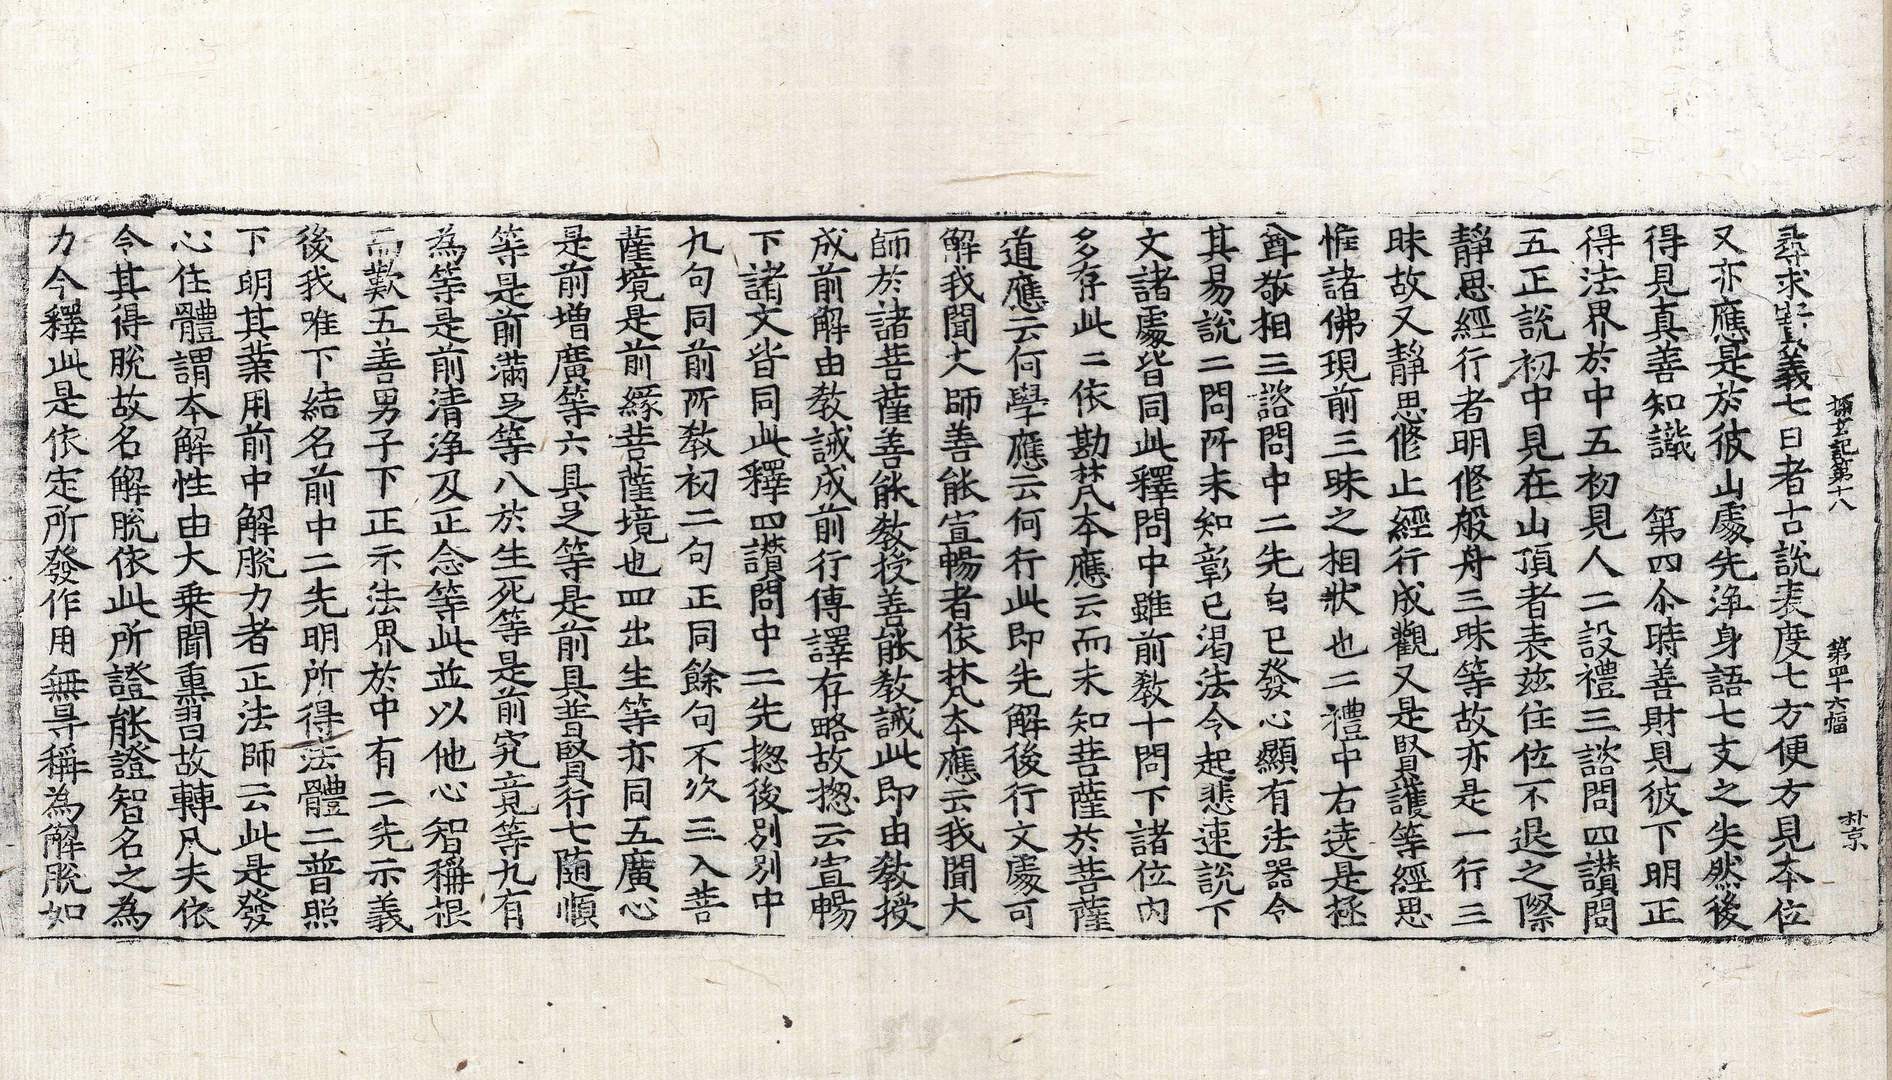 探玄記第十八　第四十六幅　朴京
尋求實義七日者古說表度七方便方見本位
又亦應是於彼山處先淨身語七支之失然後
得見真善知識　第四尒時善財見彼下明正
得法界於中五初見人二設禮三諮問四讃問
五正說初中見在山頂者表玆住位不退之際
靜思經行者明修般舟三昧等故亦是一行三
昧故又靜思修止經行成觀又是賢護等經思
惟諸佛現前三昧之相狀也二禮中右遶是極
尊敬相三諮問中二先自已發心顯有法器令
其易說二問所未知彰已渴法令起悲速說下
文諸處皆同此釋問中雖前教十問下諸位內
多存此二依勘梵本應云而未知菩薩於菩薩
道應云何學應云何行此即先解後行文處可
解我聞大師善能宣暢者依梵本應云我聞大
師於諸菩薩善能教授善能教誡此即由教授
成前解由教誡成前行傳譯存略故揔云宣暢
下諸文皆同此釋四讃問中二先揔後別別中
九句同前所教初二句正同餘句不次三入菩
薩境是前緣菩薩境也四出生等亦同五廣心
是前增廣等六具足等是前具普賢行七随順
等是前滿足等八於生死等是前究竟等九有
為等是前清淨及正念等此並以他心智稱根
而歎五善男子下正示法界於中有二先示義
後我唯下結名前中二先明所得法體二普照
下明其業用前中解脫力者正法師云此是發
心住體謂本解性由大乘聞熏習故轉凡夫依
令其得脫故名解脫依此所證能證智名之為
力今釋此是依定所發作用無㝵稱為解脫如